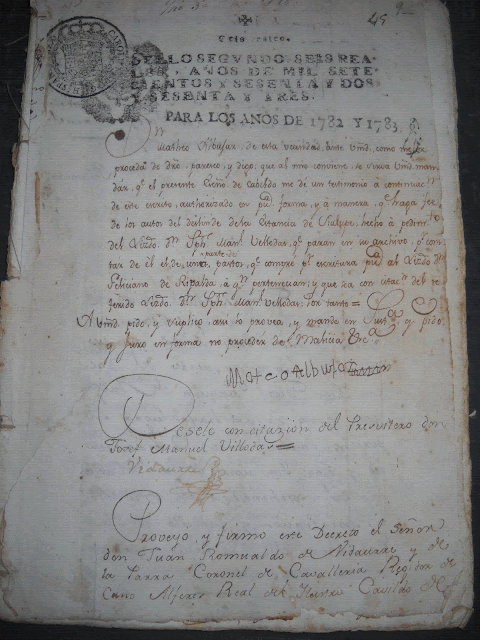 45
Seis reales.
SELLO SEGVNDO SEIS REA-
LES, AÑOS DE MIL SETE-
CIENTOS Y SESENTA Y DOS
Y SESENTA Y TRES.
PARA LOS AÑOS DE 1782 Y 1783.
Matheo Albujar de esta vecindad, ante Vmd, como mejor
proceda de dro. paresco, y digo, que al mio conviene, se sirva Vmd man-
dar, qe. el presente Essno. de Cabildo me dé un testimonio à continuacn.
de este escrito, authorizado en pca. forma, y à manera, qe. haga fee,
de los autos del deslinde de la Estancia de hecho à pedimto.
del Lizdo. Dn. Jph. Manl. Velledas, qe. paran en su archivo, qe. cons-
tar de el de unas partos, qe. compré pr. escritura pca. al Lizdo. Dn.
parte de
Feliciano de à qn. pertenecian, y que sea con citacn. del re-
ferido Lizdo. Dn. Jph. Manl. Velledas: Por tanto=
A Vmd pido, y suplico, asi lo provea, y mande en Justa. qe. pido
y juro en forma no proceder de Malicia &ca.
Mateo Albujar
Desele con citazion del Presvitero don
Josef Manuel Villedas=
Vidaurre
Proveyo, y firmo este Decreto el Señor
don Juan Romualdo de Vidaurre y de
la Parra Coronel de Cavalleria Regidor de
cano Alferes Real del Ilustre Cavildo de